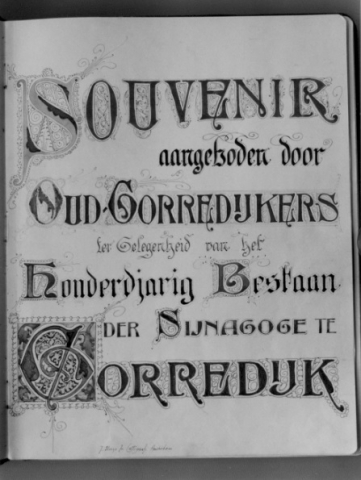 SOUVENIR
aangeboden door
OUD-GORREDIJKERS
ter Gelegenheid van het
Honderdjarig Bestaan
DER SIJNAGOGE TE
GORREDIJK